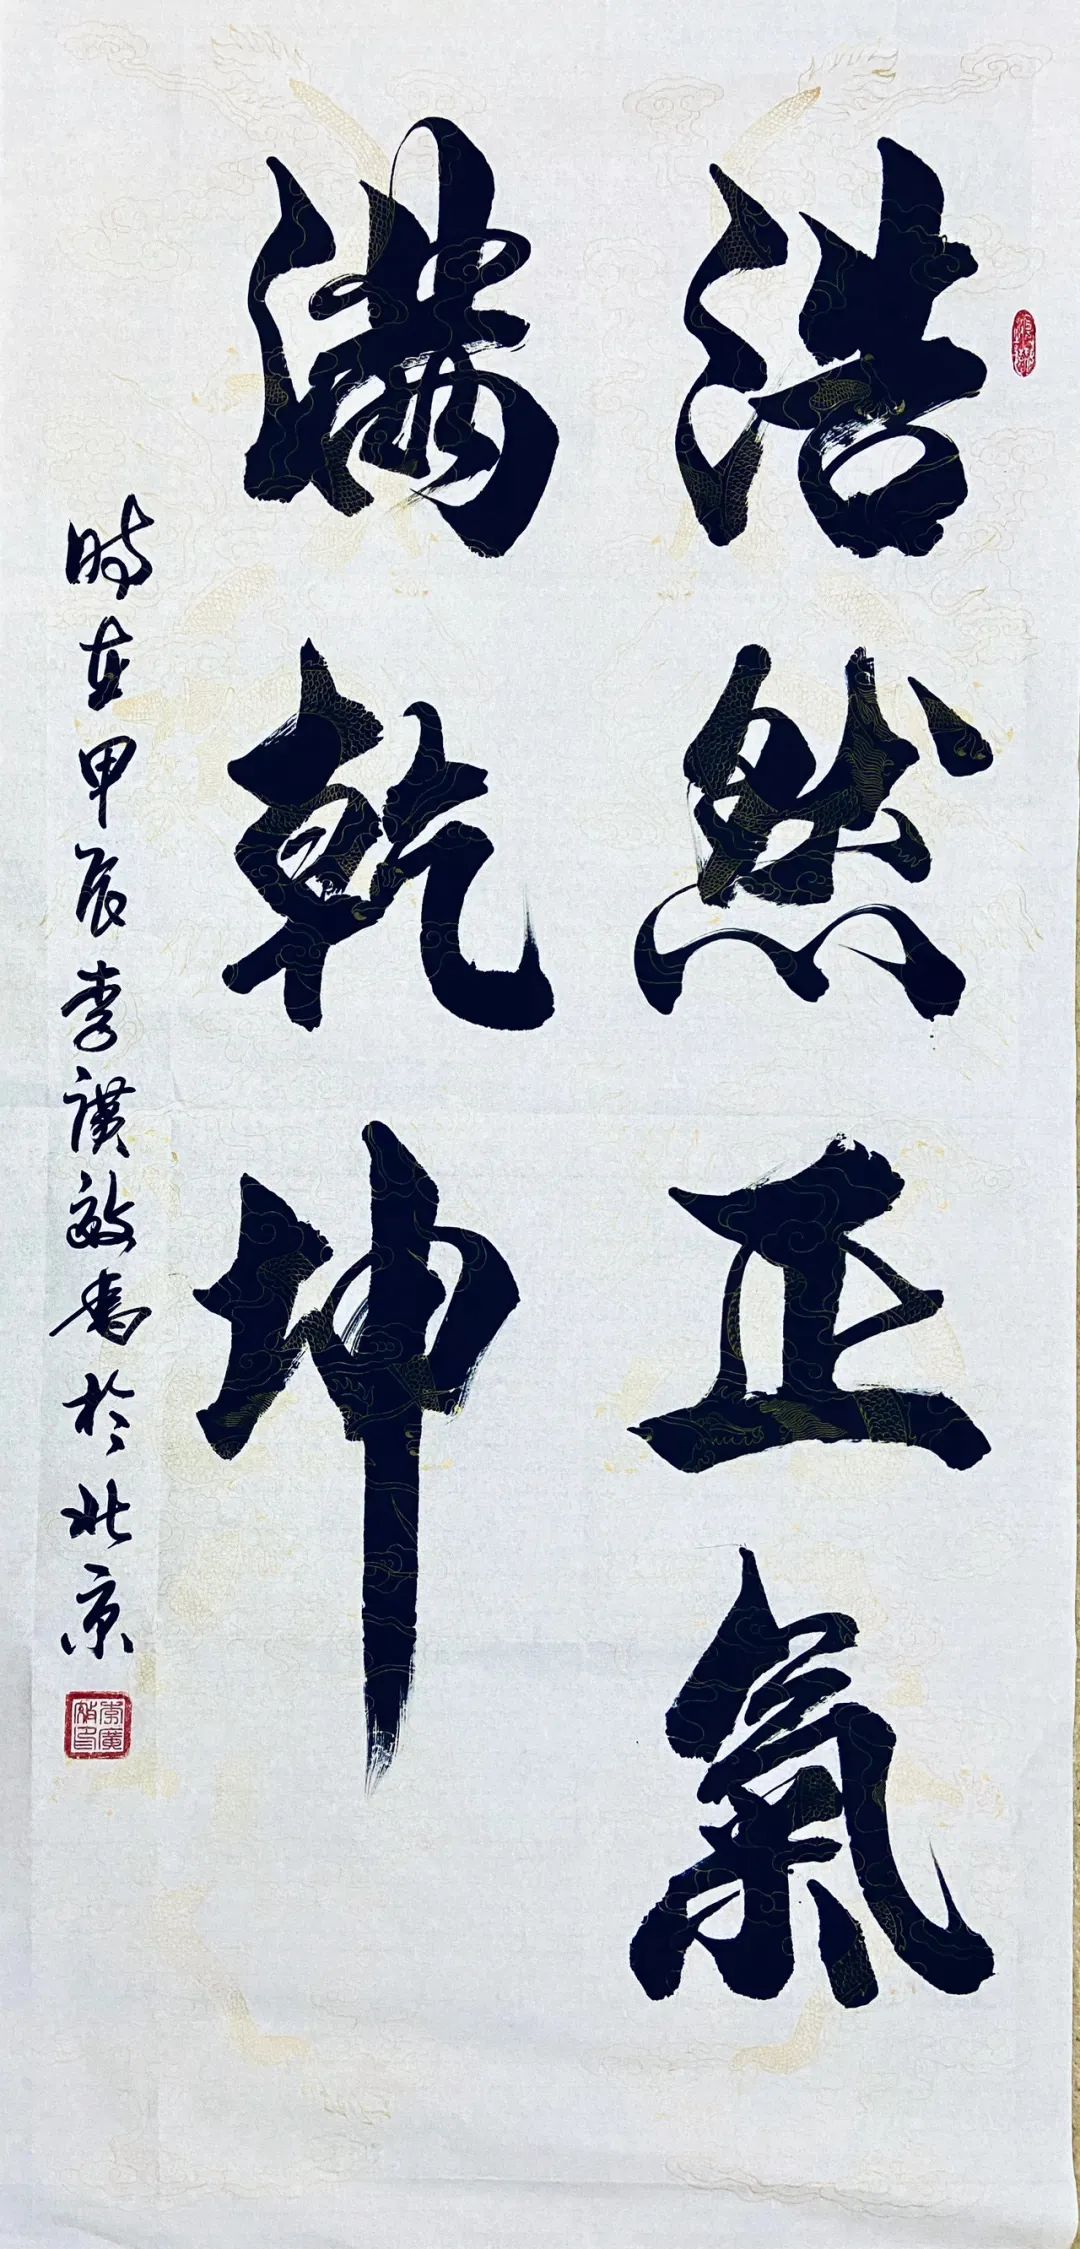 浩然正氣
滿乾坤
時在甲辰李廣敏書於北京
李廣敏印